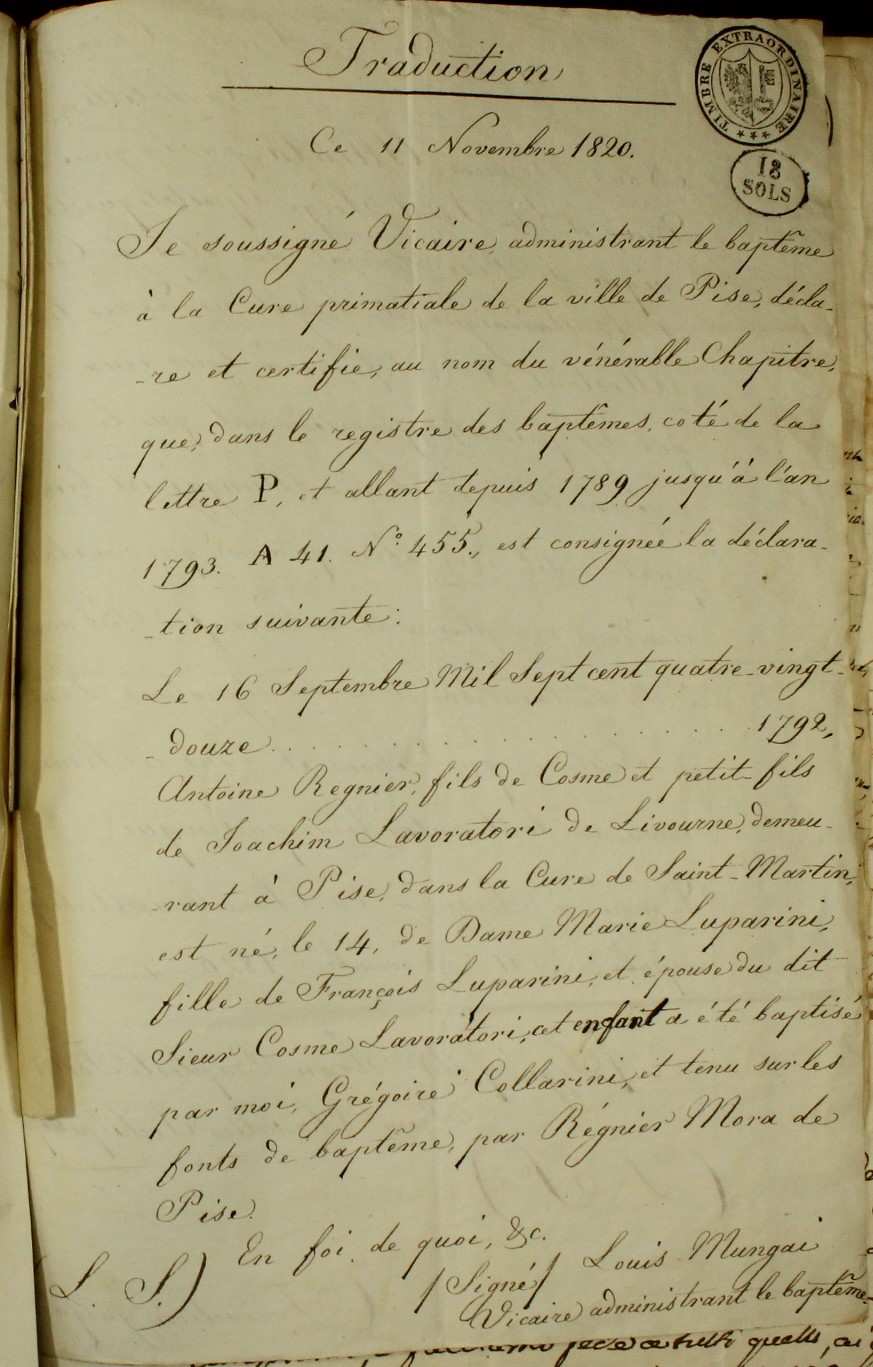 Traduction
TIMBRE EXTRAORDINAIRE
18
SOLS
Ce 11 Novembre 1820.
Je soussigné Vicaire, administrant le baptême
à la Cure primatiale de la ville de Pise, décla-
-re et certifie, au nom du vénérable Chapitre,
que, dans le registre des baptêmes, coté de la
lettre P, et allant depuis 1789 jusqu'à l'an
1793. A 41. N.° 455., est consignée la déclara-
-tion suivante:
Le 16 Septembre Mil Sept cent quatre-vingt-
-douze . . . . . . . . . . . . . . . . . . 1792,
Antoine Regnier, fils de Cosme et petit-fils
de Joachim Lavoratori de Livourne, demeu-
-rant à Pise, dans la Cure de Saint-Martin,
est né, le 14, de Dame Marie Luparini,
fille de François Luparini, et épouse du dit
Sieur Cosme Lavoratori, cet enfant a été baptisé
par moi, Grégoire Collarini, et tenu sur les
fonts de baptême, par Régnier Mora de
Pise.
En foi de quoi, &c.
(L. S.) /Signé/ Louis Mungai
Vicaire administrant le baptême-